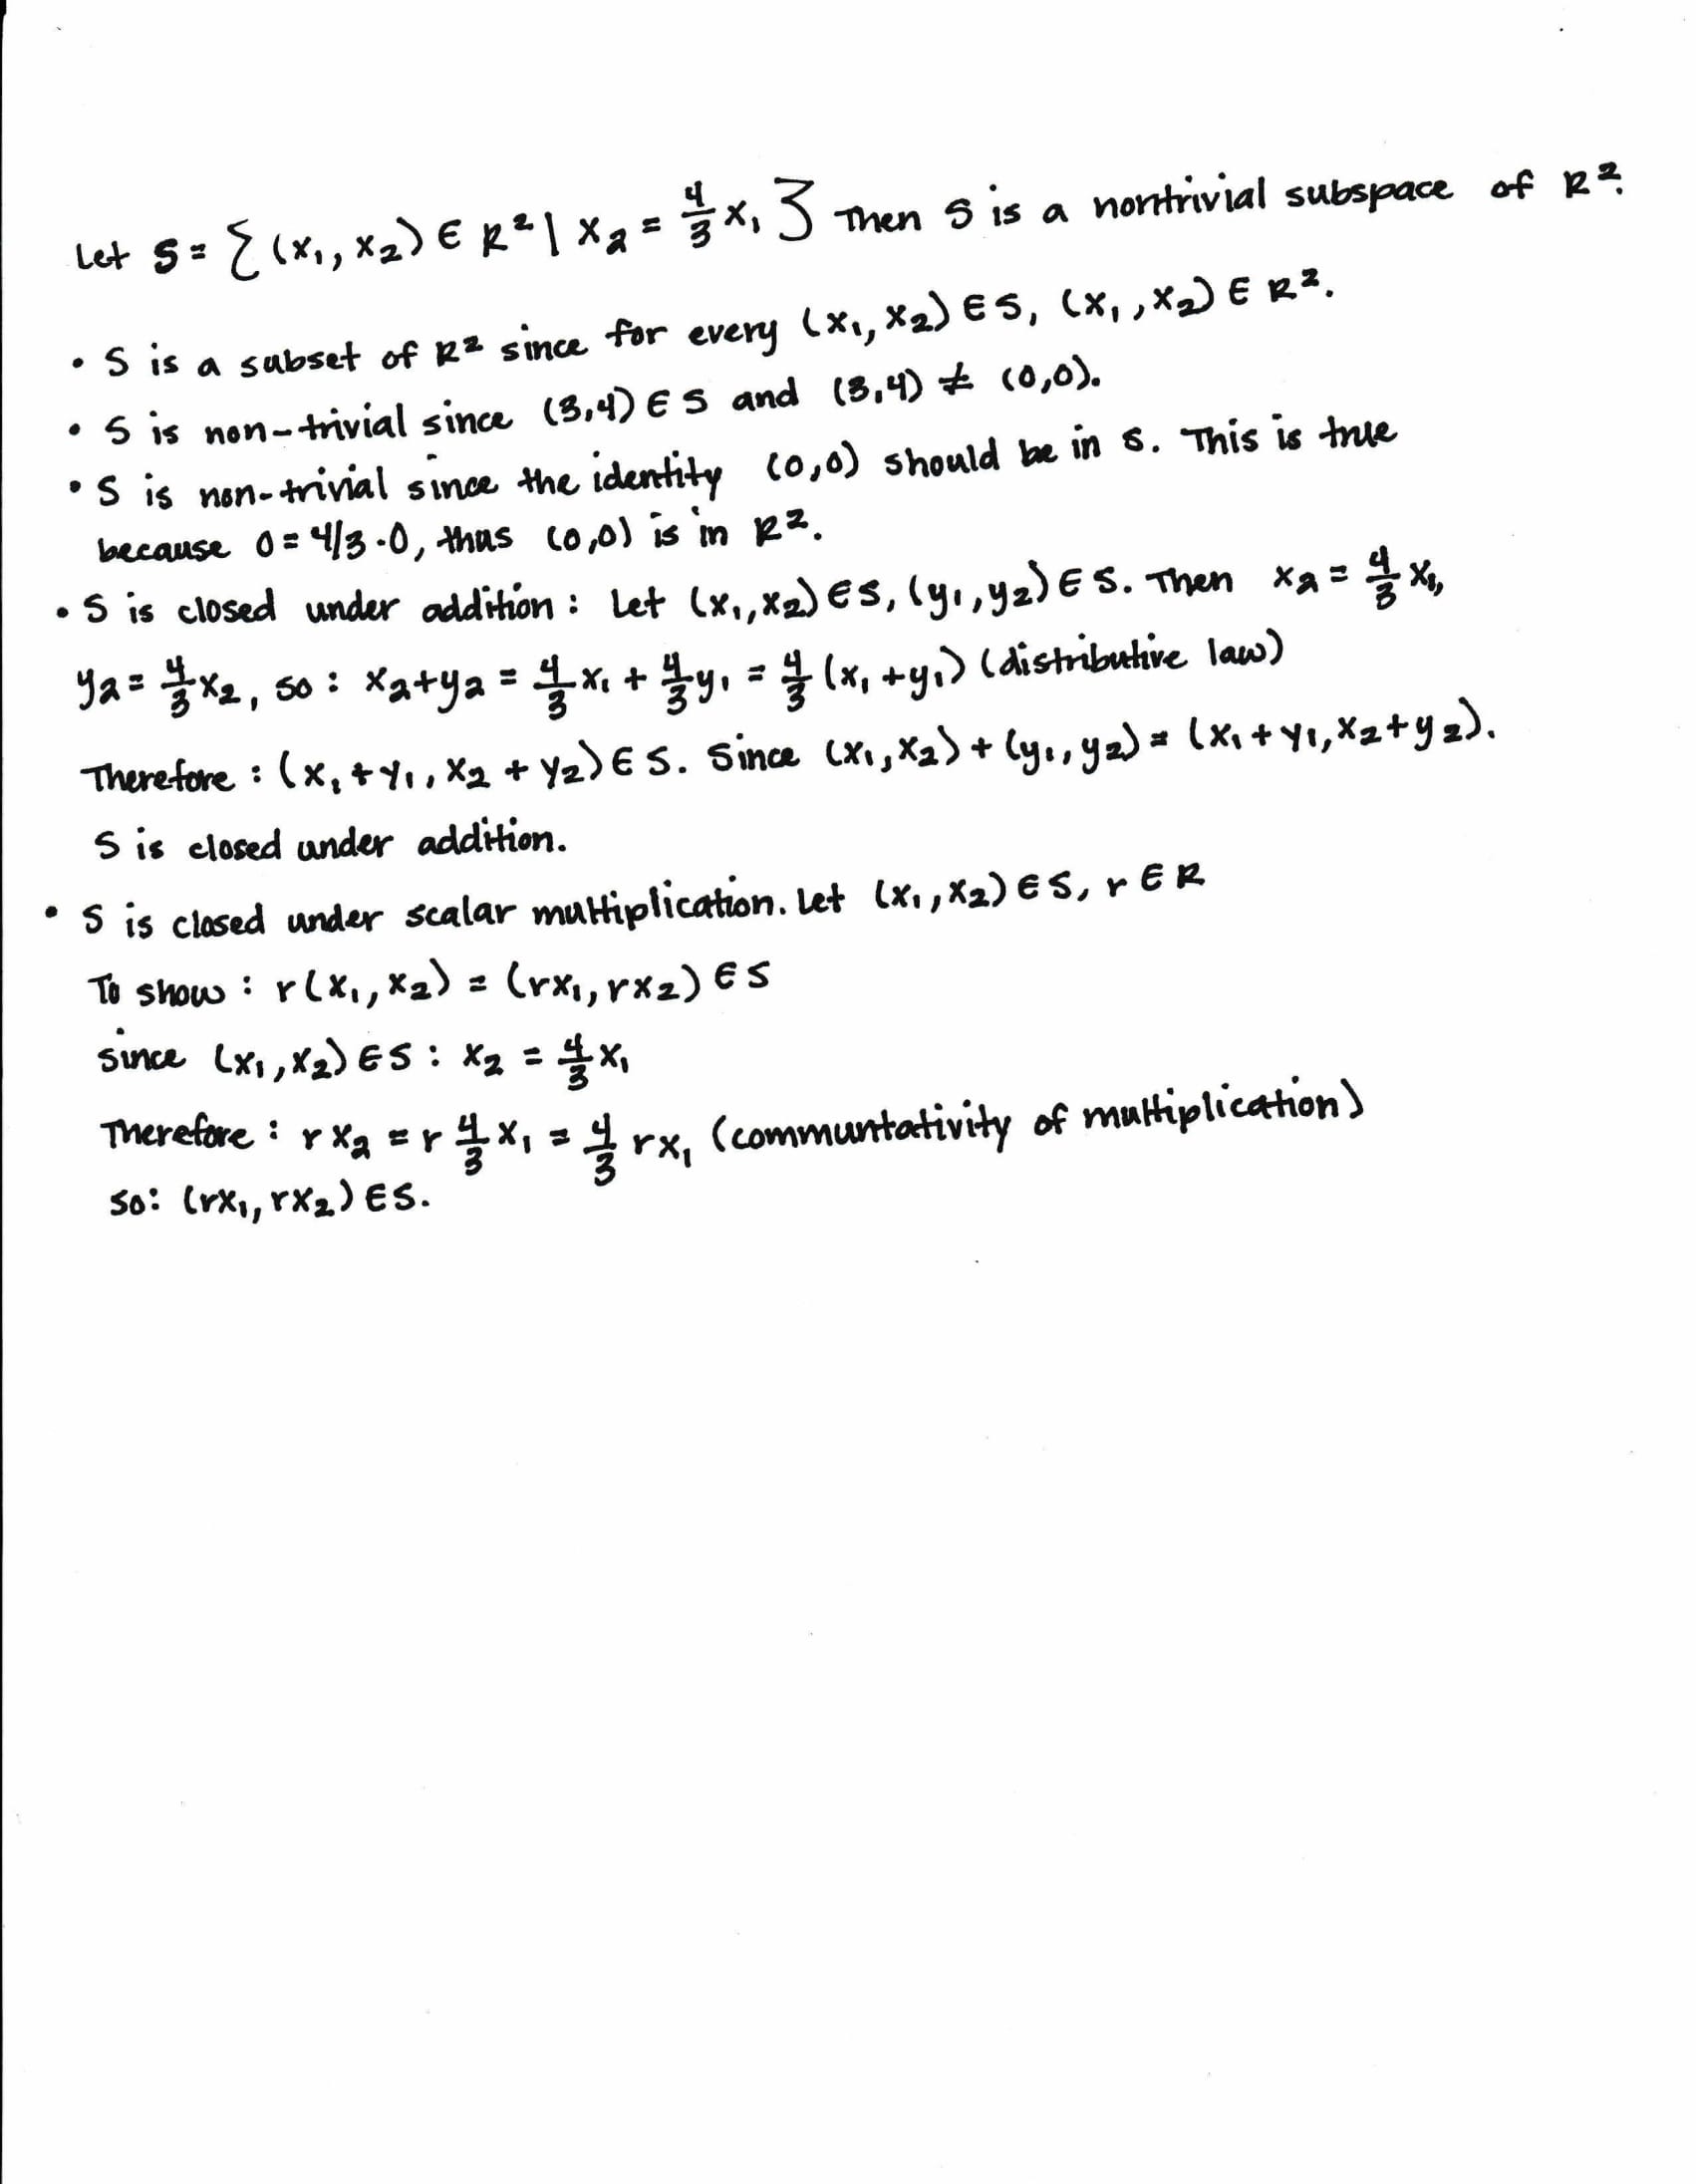 Let S = { (x₁, x₂) ∈ R² | x₂ = 4/3 x₁ } Then S is a nontrivial subspace of R².
• S is a subset of R² since for every (x₁, x₂) ∈ S, (x₁, x₂) ∈ R².
• S is non-trivial since (3,4) ∈ S and (3,4) ≠ (0,0).
• S is non-trivial since the identity (0,0) should be in S. This is true
because 0 = 4/3 · 0, thus (0,0) is in R².
• S is closed under addition: Let (x₁, x₂) ∈ S, (y₁, y₂) ∈ S. Then x₂ = 4/3 x₁,
y₂ = 4/3 x₂, so: x₂ + y₂ = 4/3 x₁ + 4/3 y₁ = 4/3 (x₁ + y₁) (distributive law)
Therefore: (x₁ + y₁, x₂ + y₂) ∈ S. Since (x₁, x₂) + (y₁, y₂) = (x₁ + y₁, x₂ + y₂).
S is closed under addition.
• S is closed under scalar multiplication. Let (x₁, x₂) ∈ S, r ∈ R
To show: r(x₁, x₂) = (rx₁, rx₂) ∈ S
since (x₁, x₂) ∈ S: x₂ = 4/3 x₁
Therefore: r x₂ = r 4/3 x₁ = 4/3 rx₁ (communtativity of multiplication)
so: (rx₁, rx₂) ∈ S.